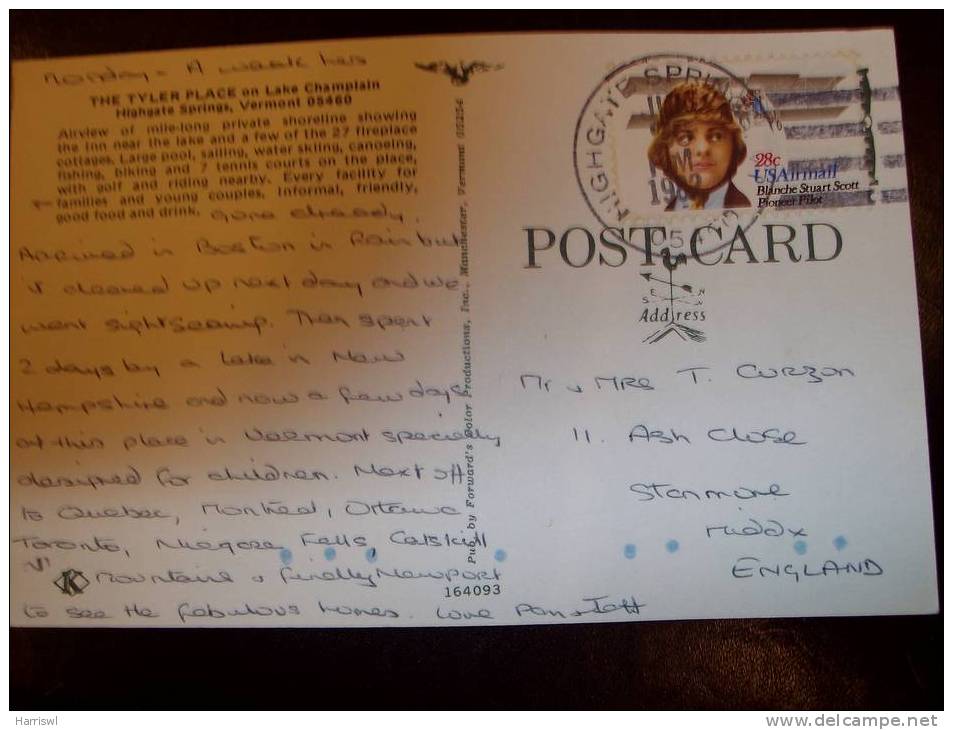 Monday - A week has
THE TYLER PLACE on Lake Champlain
Highgate Springs, Vermont 05460
Airview of mile-long private shoreline showing
the inn near the lake and a few of the 27 fireplace
cottages. Large pool, sailing, water skiing, canoeing,
fishing, biking and 7 tennis courts on the place,
with golf and riding nearby. Every facility for
families and young couples. Informal, friendly,
good food and drink.
gone already.
Arrived in Boston in Rain but
it cleared up next day and we
went sightseeing. Then spent
2 days by a Lake in New
Hampshire and now a few days
at this place in Vermont specially
designed for children. Next off
to Quebec, Montreal, Ottawa
Toronto, Niagara Falls, Catskill
Mountains & finally Newport
to see the fabulous homes. Love Pam & Jeff
K
164093
Pub. by Forward's Color Productions, Inc., Manchester, Vermont 05254
HIGHGATE SPRINGS
AM
28c
USAirmail
Blanche Stuart Scott
Pioneer Pilot
POST CARD
E N
S W
Address
Mr & MRS T. Curzon
11. Ash Close
Stanmore
Middx
ENGLAND
Harriswl
www.delcampe.net